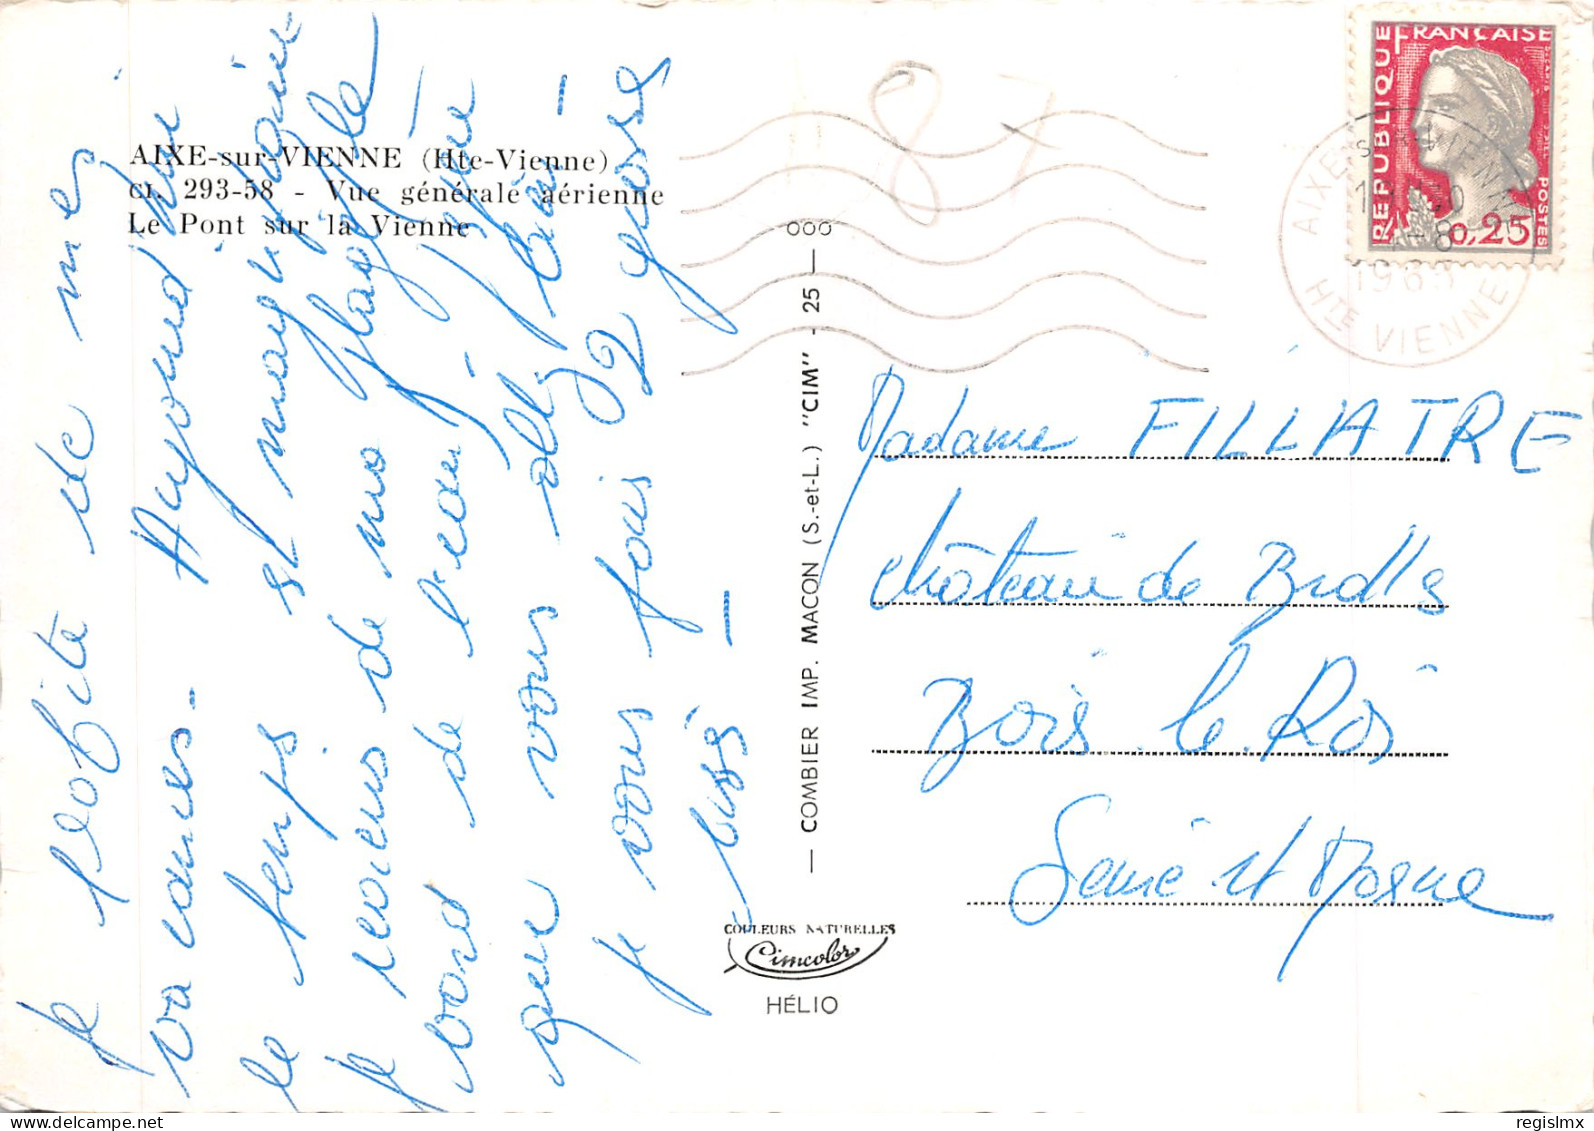 AIXE-sur-VIENNE (Hte-Vienne)
CI. 293-58 - Vue générale aérienne
Le Pont sur la Vienne
Je profite de mes
vacances - Aujourd'hui
le temps est magnifique
Je reviens de ma plage, le
bord de l'eau
que vous allez bien -
je vous fais 2 gross
bises -
87
— COMBIER IMP. MACON (S.-et-L.) "CIM" - 25 —
000
COULEURS NATURELLES
Cimcolor
HÉLIO
RÉPUBLIQUE FRANÇAISE
POSTES
0,25
AIXE-SUR-VIENNE
-8
HTE VIENNE
Madame FILLIATRE
Château de Brolles
Bois le Roi
Seine et Marne
regislmx